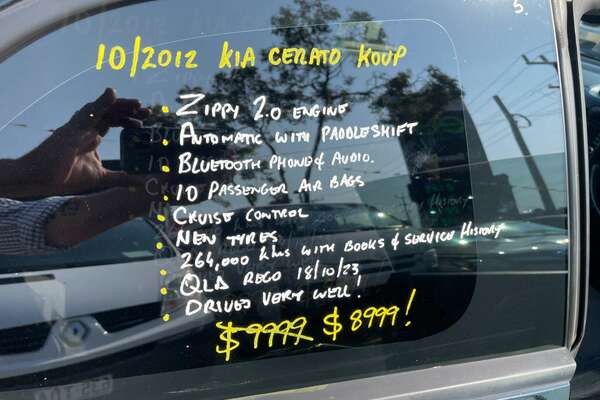 5.
10/2012 KIA CERATO KOUP
• ZIPPY 2.0 ENGINE
• AUTOMATIC WITH PADDLESHIFT.
• BLUETOOTH PHONE & AUDIO.
• 10 PASSENGER AIR BAGS
• CRUISE CONTROL
• NEW TYRES
• 264,000 KMS WITH BOOKS & SERVICE HISTORY
• QLD REGO 18/10/23
• DRIVES VERY WELL!
$9999 $8999!